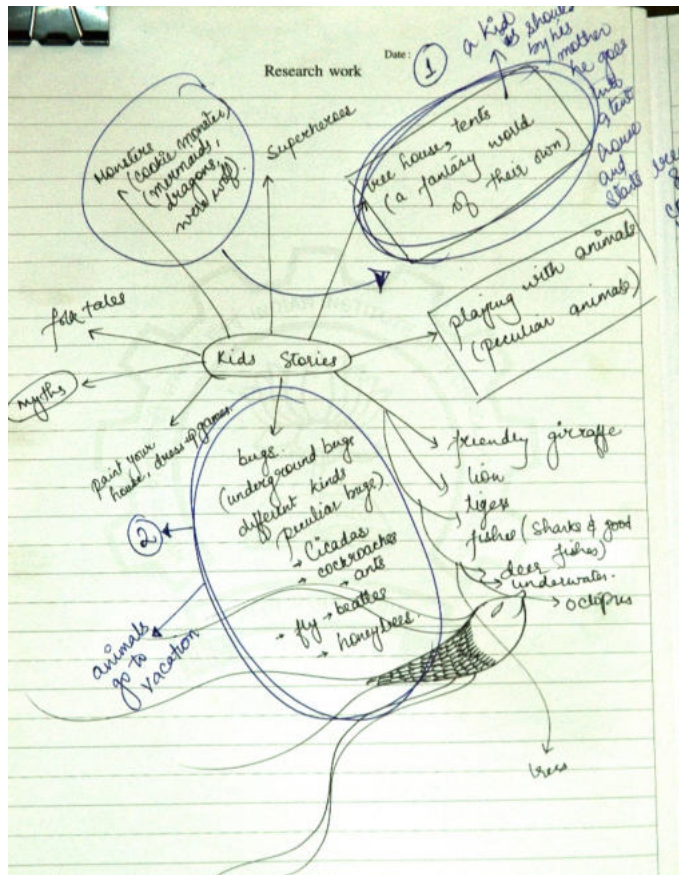 Date :
Research work
1
a kid
is should
by his
mother
he goes
into
a tent
house
and
starts
Monsters
(cookie monster,
(mermaids,
dragons,
werewolf.
Superheroes
tree house, tents
(a fantasy world
of their own)
playing with animals
(peculiar animals)
folk tales
Kids Stories
Myths
paint your
house, dress up games.
bugs.
(underground bugs
different kinds
peculiar bugs)
→ Cicadas
→ cockroaches
→ ants
→ fly → beatles
→ honeybees.
2
animals
go to
vacation
friendly girraffe
lion
tigers
fishes (sharks & good
fishes)
deer
underwater.
octopus